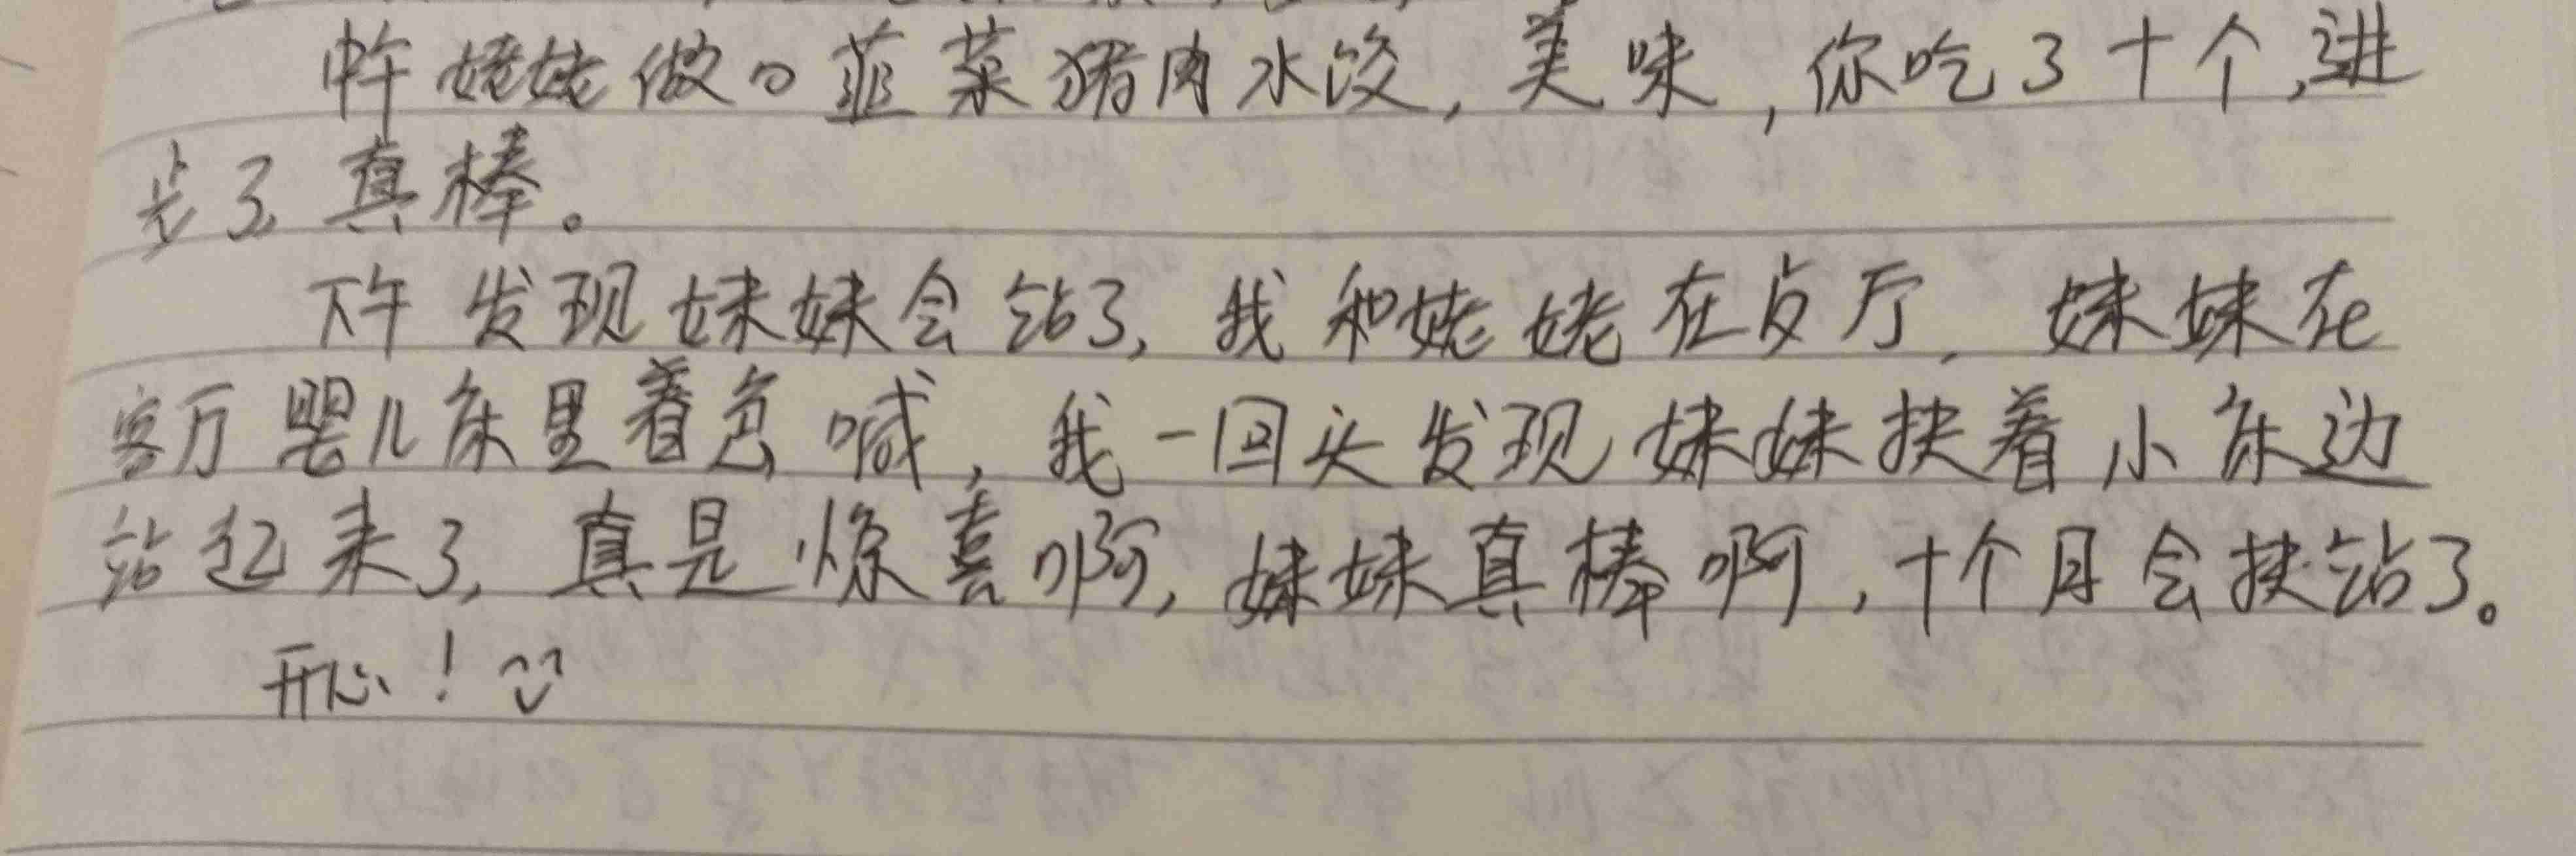 中午姥姥做的韭菜猪肉水饺,美味,你吃了十个,进
步了真棒。
下午发现妹妹会站了,我和姥姥在饭厅,妹妹在
客厅婴儿床里着急喊,我一回头发现妹妹扶着小床边
站起来了,真是惊喜啊,妹妹真棒啊,十个月会扶站了。
开心!